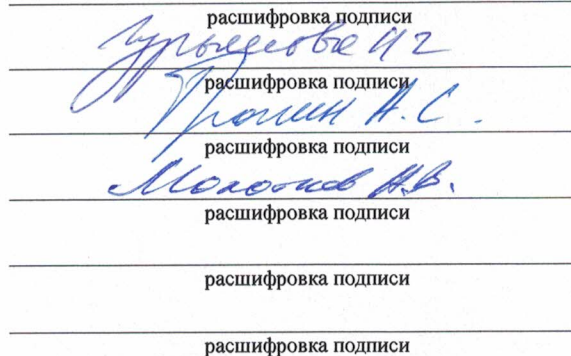 расшифровка подписи
расшифровка подписи
Тронин А.С.
расшифровка подписи
Молотков А.В.
расшифровка подписи
расшифровка подписи
расшифровка подписи